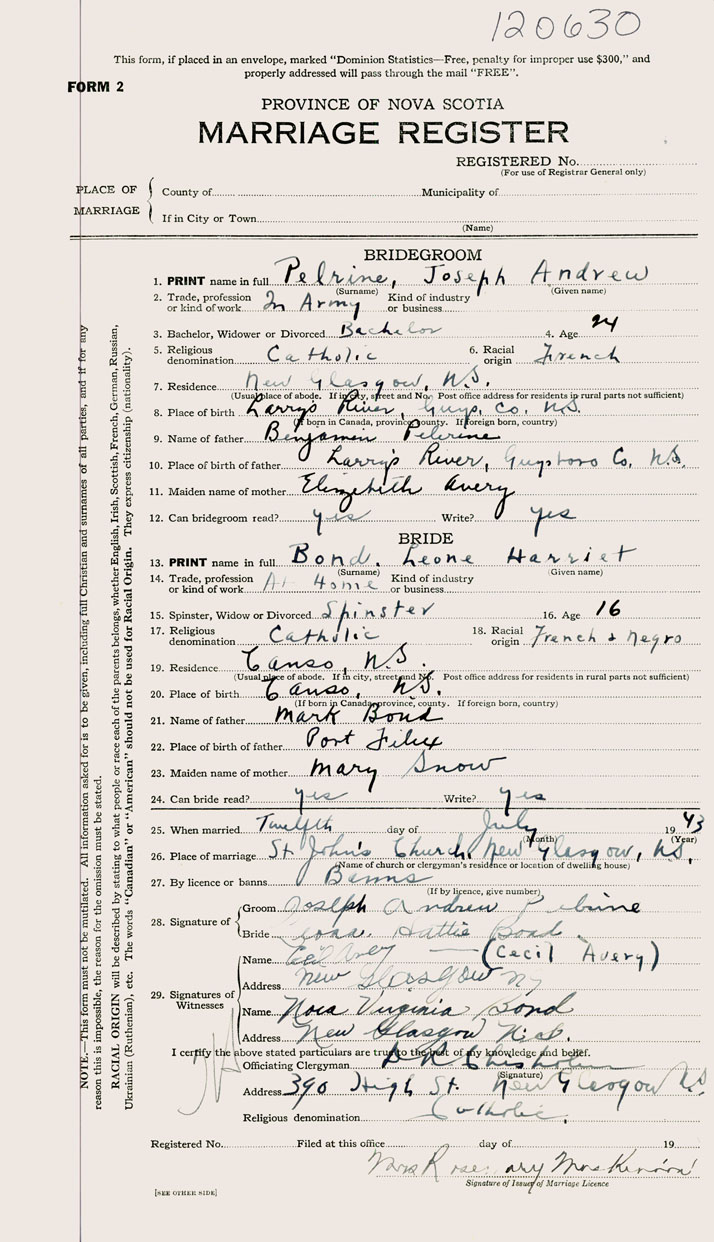 120630
This form, if placed in an envelope, marked "Dominion Statistics—Free, penalty for improper use $300," and
properly addressed will pass through the mail "FREE".
FORM 2
PROVINCE OF NOVA SCOTIA
MARRIAGE REGISTER
REGISTERED No.
(For use of Registrar General only)
PLACE OF MARRIAGE
County of Municipality of
If in City or Town
(Name)
BRIDEGROOM
1. PRINT name in full Pelrine, Joseph Andrew
(Surname) (Given name)
2. Trade, profession or kind of work In Army Kind of industry or business
3. Bachelor, Widower or Divorced Bachelor 4. Age 24
5. Religious denomination Catholic 6. Racial origin French
7. Residence New Glasgow, N.S.
(Usual place of abode. If in city, street and No. Post office address for residents in rural parts not sufficient)
8. Place of birth Larry's River, Guys. Co. N.S.
(If born in Canada, province, county. If foreign born, country)
9. Name of father Benjamin Pelrine
10. Place of birth of father Larry's River, Guysboro Co. N.S.
11. Maiden name of mother Elizabeth Avery
12. Can bridegroom read? yes Write? yes
BRIDE
13. PRINT name in full Bond, Leone Harriet
(Surname) (Given name)
14. Trade, profession or kind of work At Home Kind of industry or business
15. Spinster, Widow or Divorced Spinster 16. Age 16
17. Religious denomination Catholic 18. Racial origin French & Negro
19. Residence Canso, N.S.
(Usual place of abode. If in city, street and No. Post office address for residents in rural parts not sufficient)
20. Place of birth Canso, N.S.
(If born in Canada, province, county. If foreign born, country)
21. Name of father Mark Bond
22. Place of birth of father Port Felix
23. Maiden name of mother Mary Snow
24. Can bride read? yes Write? yes
25. When married Twelfth day of July 1943
(Month) (Year)
26. Place of marriage St John's Church, New Glasgow, N.S.
(Name of church or clergyman's residence or location of dwelling house)
27. By licence or banns Banns
(If by licence, give number)
28. Signature of
Groom Joseph Andrew Pelrine
Bride Hattie Bond
29. Signatures of Witnesses
Name Cecil Avery (Cecil Avery)
Address New Glasgow
Name Nora Virginia Bond
Address New Glasgow N.S.
I certify the above stated particulars are true to the best of my knowledge and belief.
Officiating Clergyman Chisholm
(Signature)
Address 390 High St. New Glasgow N.S.
Religious denomination Catholic
Registered No. Filed at this office day of 19
Mrs Rosemary
Signature of Issuer of Marriage Licence
[SEE OTHER SIDE]
NOTE.—This form must not be mutilated. All information asked for is to be given, including full Christian and surnames of all parties, and if for any
reason this is impossible, the reason for the omission must be stated.
RACIAL ORIGIN will be described by stating to what people or race each of the parents belongs, whether English, Irish, Scottish, French, German, Russian,
Ukrainian (Ruthenian), etc. The words "Canadian" or "American" should not be used for Racial Origin. They express citizenship (nationality).